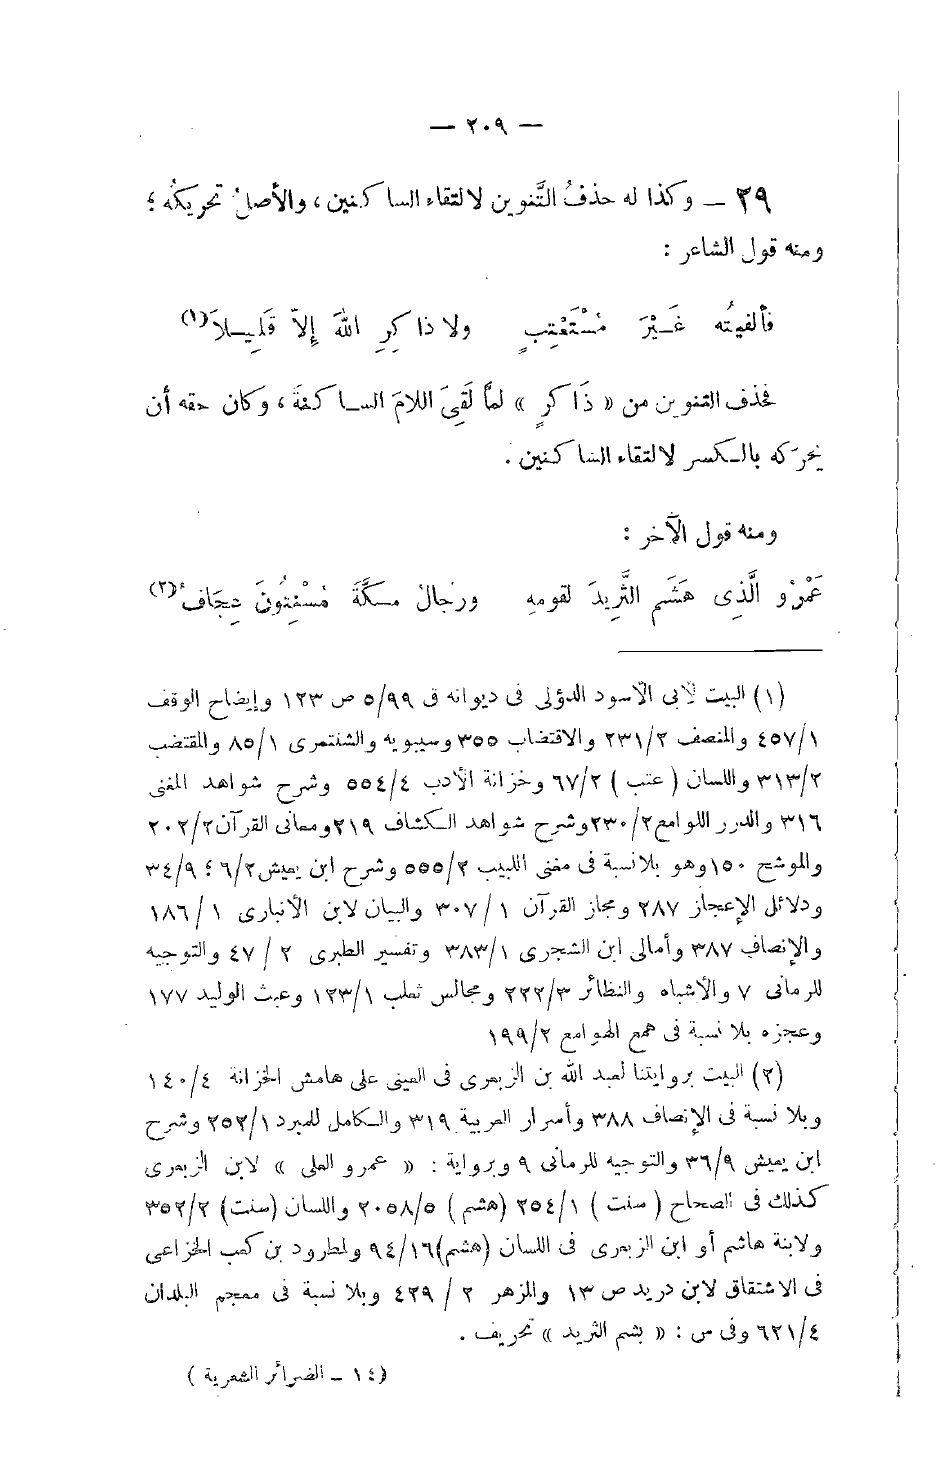 — ٢٠٩ —
٢٩ — وكذا له حذفُ التَّنوين لالتقاء الساكنين ، والأصلُ تحريكُه ؛
ومنه قول الشاعر :
فألفيتُه غَيْرَ مُسْتَعْتِبٍ ولا ذاكِرِ اللهَ إلاّ قَلِيلاَ(١)
فحذف التنوين من « ذَاكرٍ » لمَّا لَقِىَ اللامَ الساكنةَ ، وكان حقه أن
يحرّكه بالكسر لالتقاء الساكنين .
ومنه قول الآخر :
عَمْرُو الَّذِى هَشَم الثَّرِيدَ لقومهِ ورجَالُ مكَّةَ مُسْنِتُونَ عِجَافُ(٢)
(١) البيت لأبى الأسود الدؤلى فى ديوانه ق ٥/٩٩ ص ١٢٣ وإيضاح الوقف
٤٥٧/١ والمنصف ٢٣١/٢ والاقتضاب ٣٥٥ وسيبويه والشنتمرى ٨٥/١ والمقتضب
٣١٣/٢ واللسان ( عتب ) ٦٧/٢ وخزانة الأدب ٥٥٤/٤ وشرح شواهد المغنى
٣١٦ والدرر اللوامع ٢٣٠/٢ وشرح شواهد الكشاف ٢١٩ ومعانى القرآن ٢٠٢/٢
والموشح ١٥٠ وهو بلا نسبة فى مغنى اللبيب ٥٥٥/٢ وشرح ابن يعيش ٦/٢ ؛ ٣٤/٩
ودلائل الإعجاز ٢٨٧ ومجاز القرآن ٣٠٧/١ والبيان لابن الأنبارى ١٨٦/١
والإنصاف ٣٨٧ وأمالى ابن الشجرى ٣٨٣/١ وتفسير الطبرى ٤٧/٢ والتوجيه
للرمانى ٧ والأشباه والنظائر ٢٢٢/٣ ومجالس ثعلب ١٢٣/١ وعبث الوليد ١٧٧
وعجزه بلا نسبة فى همع الهوامع ١٩٩/٢
(٢) البيت بروايتنا لعبد الله بن الزبعرى فى العينى على هامش الخزانة ١٤٠/٤
وبلا نسبة فى الإنصاف ٣٨٨ وأسرار العربية ٣١٩ والكامل للمبرد ٢٥٢/١ وشرح
ابن يعيش ٣٦/٩ والتوجيه للرمانى ٩ وبرواية : « عمرو العلى » لابن الزبعرى
كذلك فى الصحاح ( سنت ) ٢٥٤/١ (هشم ) ٢٠٥٨/٥ واللسان (سنت) ٣٥٢/٢
ولابنة هاشم أو ابن الزبعرى فى اللسان (هشم) ٩٤/١٦ ولمطرود بن كعب الخزاعى
فى الاشتقاق لابن دريد ص ١٣ والمزهر ٤٢٩/٢ وبلا نسبة فى معجم البلدان
٦٢١/٤ وفى س : « بشم الثريد » تحريف .
(١٤ — الضرائر الشعرية )